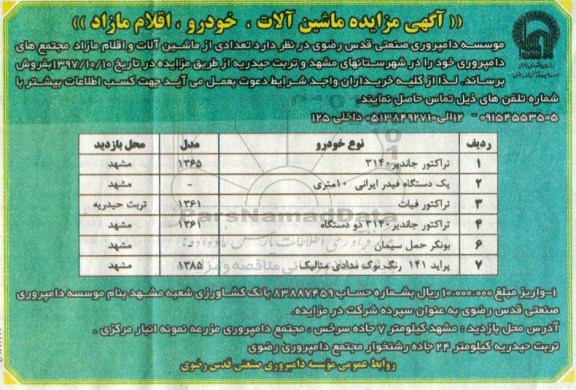 (( آگهی مزایده ماشین آلات ، خودرو ، اقلام مازاد ))
موسسه دامپروری صنعتی قدس رضوی در نظر دارد تعدادی از ماشین آلات و اقلام مازاد مجتمع های
دامپروری خود را در شهرستانهای مشهد و تربت حیدریه از طریق مزایده در تاریخ ۱۳۹۷/۱۰/۱۰ بفروش
برساند، لذا از کلیه خریداران واجد شرایط دعوت بعمل می آید جهت کسب اطلاعات بیشتر با
شماره تلفن های ذیل تماس حاصل نمایند.
۰۹۱۵۴۵۵۳۵۰۵ - ۱۲الی۰۵۱۳۸۴۹۲۷۱۰ داخلی ۱۲۵
ردیف نوع خودرو مدل محل بازدید
۱ تراکتور جاندیر ۳۱۴۰ ۱۳۶۵ مشهد
۲ یک دستگاه فیدر ایرانی ۱۰متری - مشهد
۳ تراکتور فیات ۱۳۶۱ تربت حیدریه
۴ تراکتور جاندیر ۳۱۴۰ دو دستگاه ۱۳۶۱ مشهد
۶ بونکر حمل سیمان مشهد
۷ پراید ۱۴۱ رنگ نوک مدادی متالیک ۱۳۸۵ مشهد
ParsNamadData
۱-واریز مبلغ ۱۰،۰۰۰،۰۰۰ ریال بشماره حساب ۸۳۸۸۷۴۵۹ بانک کشاورزی شعبه مشهد بنام موسسه دامپروری
صنعتی قدس رضوی به عنوان سپرده شرکت در مزایده.
آدرس محل بازدید : مشهد کیلومتر ۷ جاده سرخس ، مجتمع دامپروری مزرعه نمونه انبار مرکزی .
تربت حیدریه کیلومتر ۲۴ جاده رشتخوار مجتمع دامپروری رضوی
روابط عمومی مؤسسه دامپروری صنعتی قدس رضوی